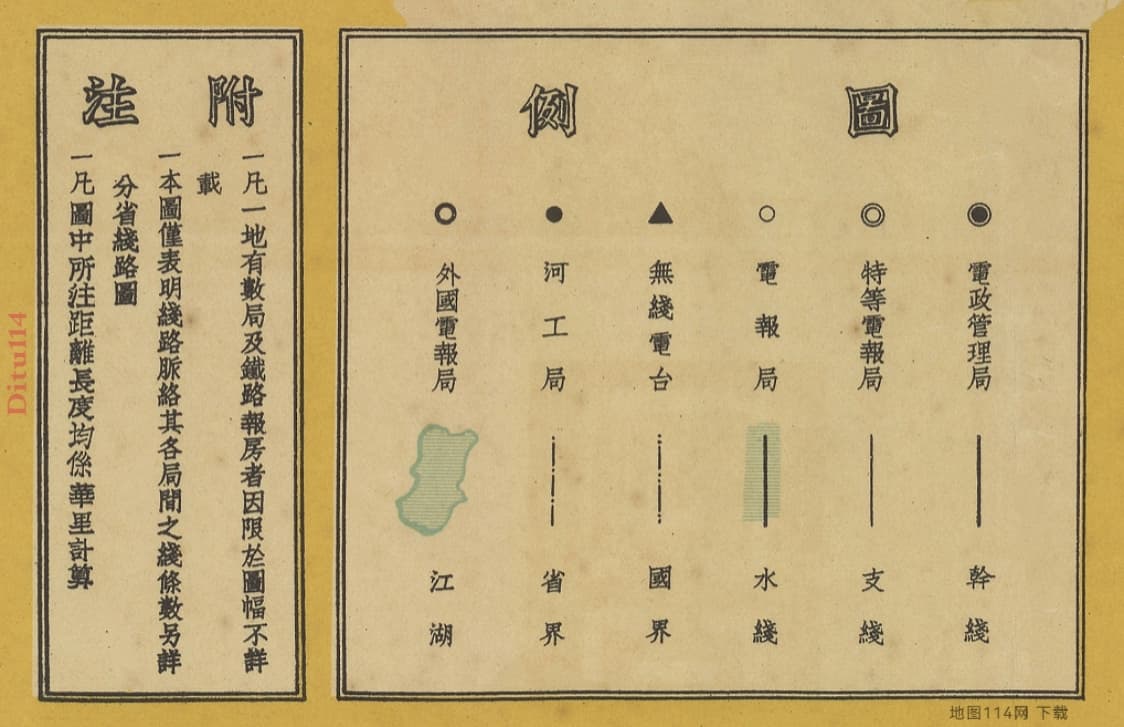 圖例
電政管理局
特等電報局
電報局
無綫電台
河工局
外國電報局
幹綫
支綫
水綫
國界
省界
江湖
附注
一凡一地有數局及鐵路報房者因限於圖幅不詳
載
一本圖僅表明綫路脈絡其各局間之綫條數另詳
分省綫路圖
一凡圖中所注距離長度均係華里計算
Ditu114
地图114网 下载